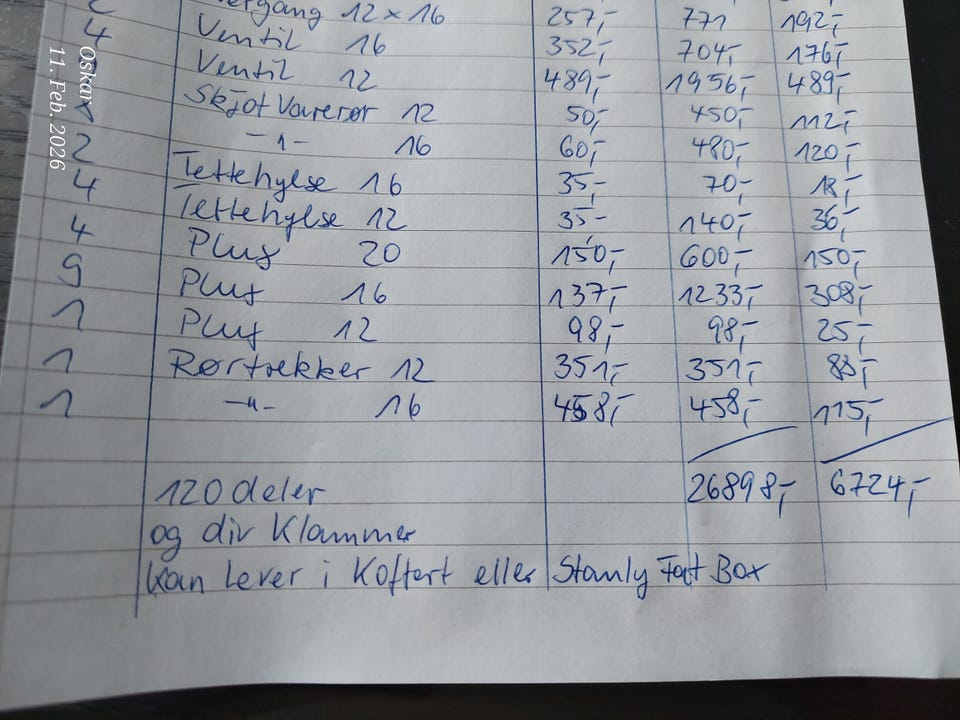 12 x 16 257,- 771 192,-
2 Ventil 16 352,- 704,- 176,-
4 Ventil 12 489,- 1956,- 489,-
Skjøt Varerør 12 50,- 450,- 112,-
8 -"- 16 60,- 480,- 120,-
2 Tettehylse 16 35,- 70,- 18,-
4 Tettehylse 12 35,- 140,- 36,-
4 Plug 20 150,- 600,- 150,-
9 Plug 16 137,- 1233,- 308,-
1 Plug 12 98,- 98,- 25,-
1 Rørtrekker 12 351,- 351,- 88,-
1 -"- 16 458,- 458,- 115,-
120 deler 26898,- 6724,-
og div Klammer
Kan Lever i Koffert eller Stanly Fat Box
Oskar
11. Feb. 2026